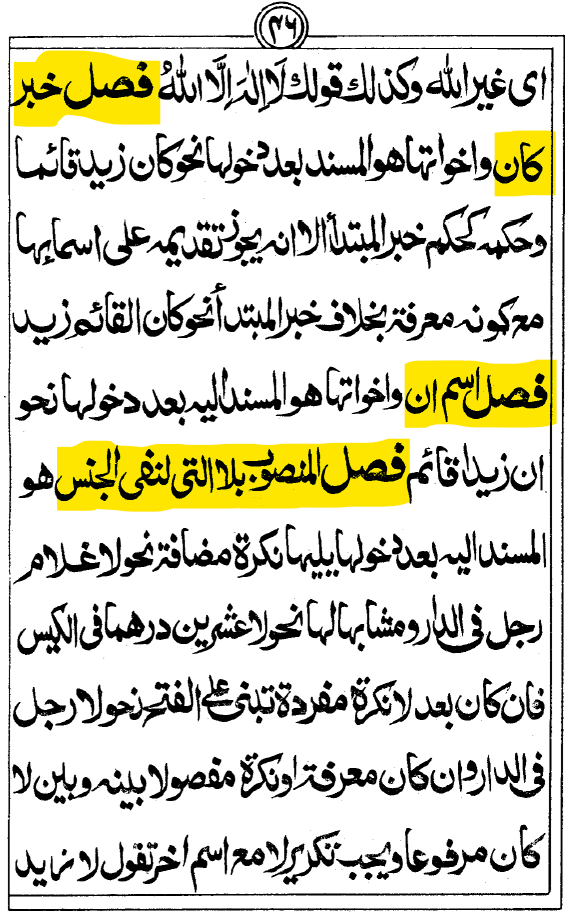 ۴۶
ای غیر الله وکذلك قولك لَا اِلٰهَ اِلَّا اللهُ فصل خبر
کان واخواتها هو المسند بعد دخولها نحو کان زید قائما
وحکمه کحکم خبر المبتدأ الا انه یجوز تقدیمه علی اسمائها
مع کونه معرفة بخلاف خبر المبتدأ نحو کان القائم زید
فصل اسم ان واخواتها هو المسند الیه بعد دخولها نحو
ان زیدا قائم فصل المنصوب بلا التی لنفی الجنس هو
المسند الیه بعد دخولها یلیها نکرة مضافة نحو لا غلام
رجل فی الدار ومشابها لها نحو لا عشرین درهما فی الکیس
فان کان بعد لا نکرة مفردة تبنی علی الفتح نحو لا رجل
فی الدار وان کان معرفة او نکرة مفصولا بینه وبین لا
کان مرفوعا ویجب تکریر لا مع اسم اخر تقول لا زید